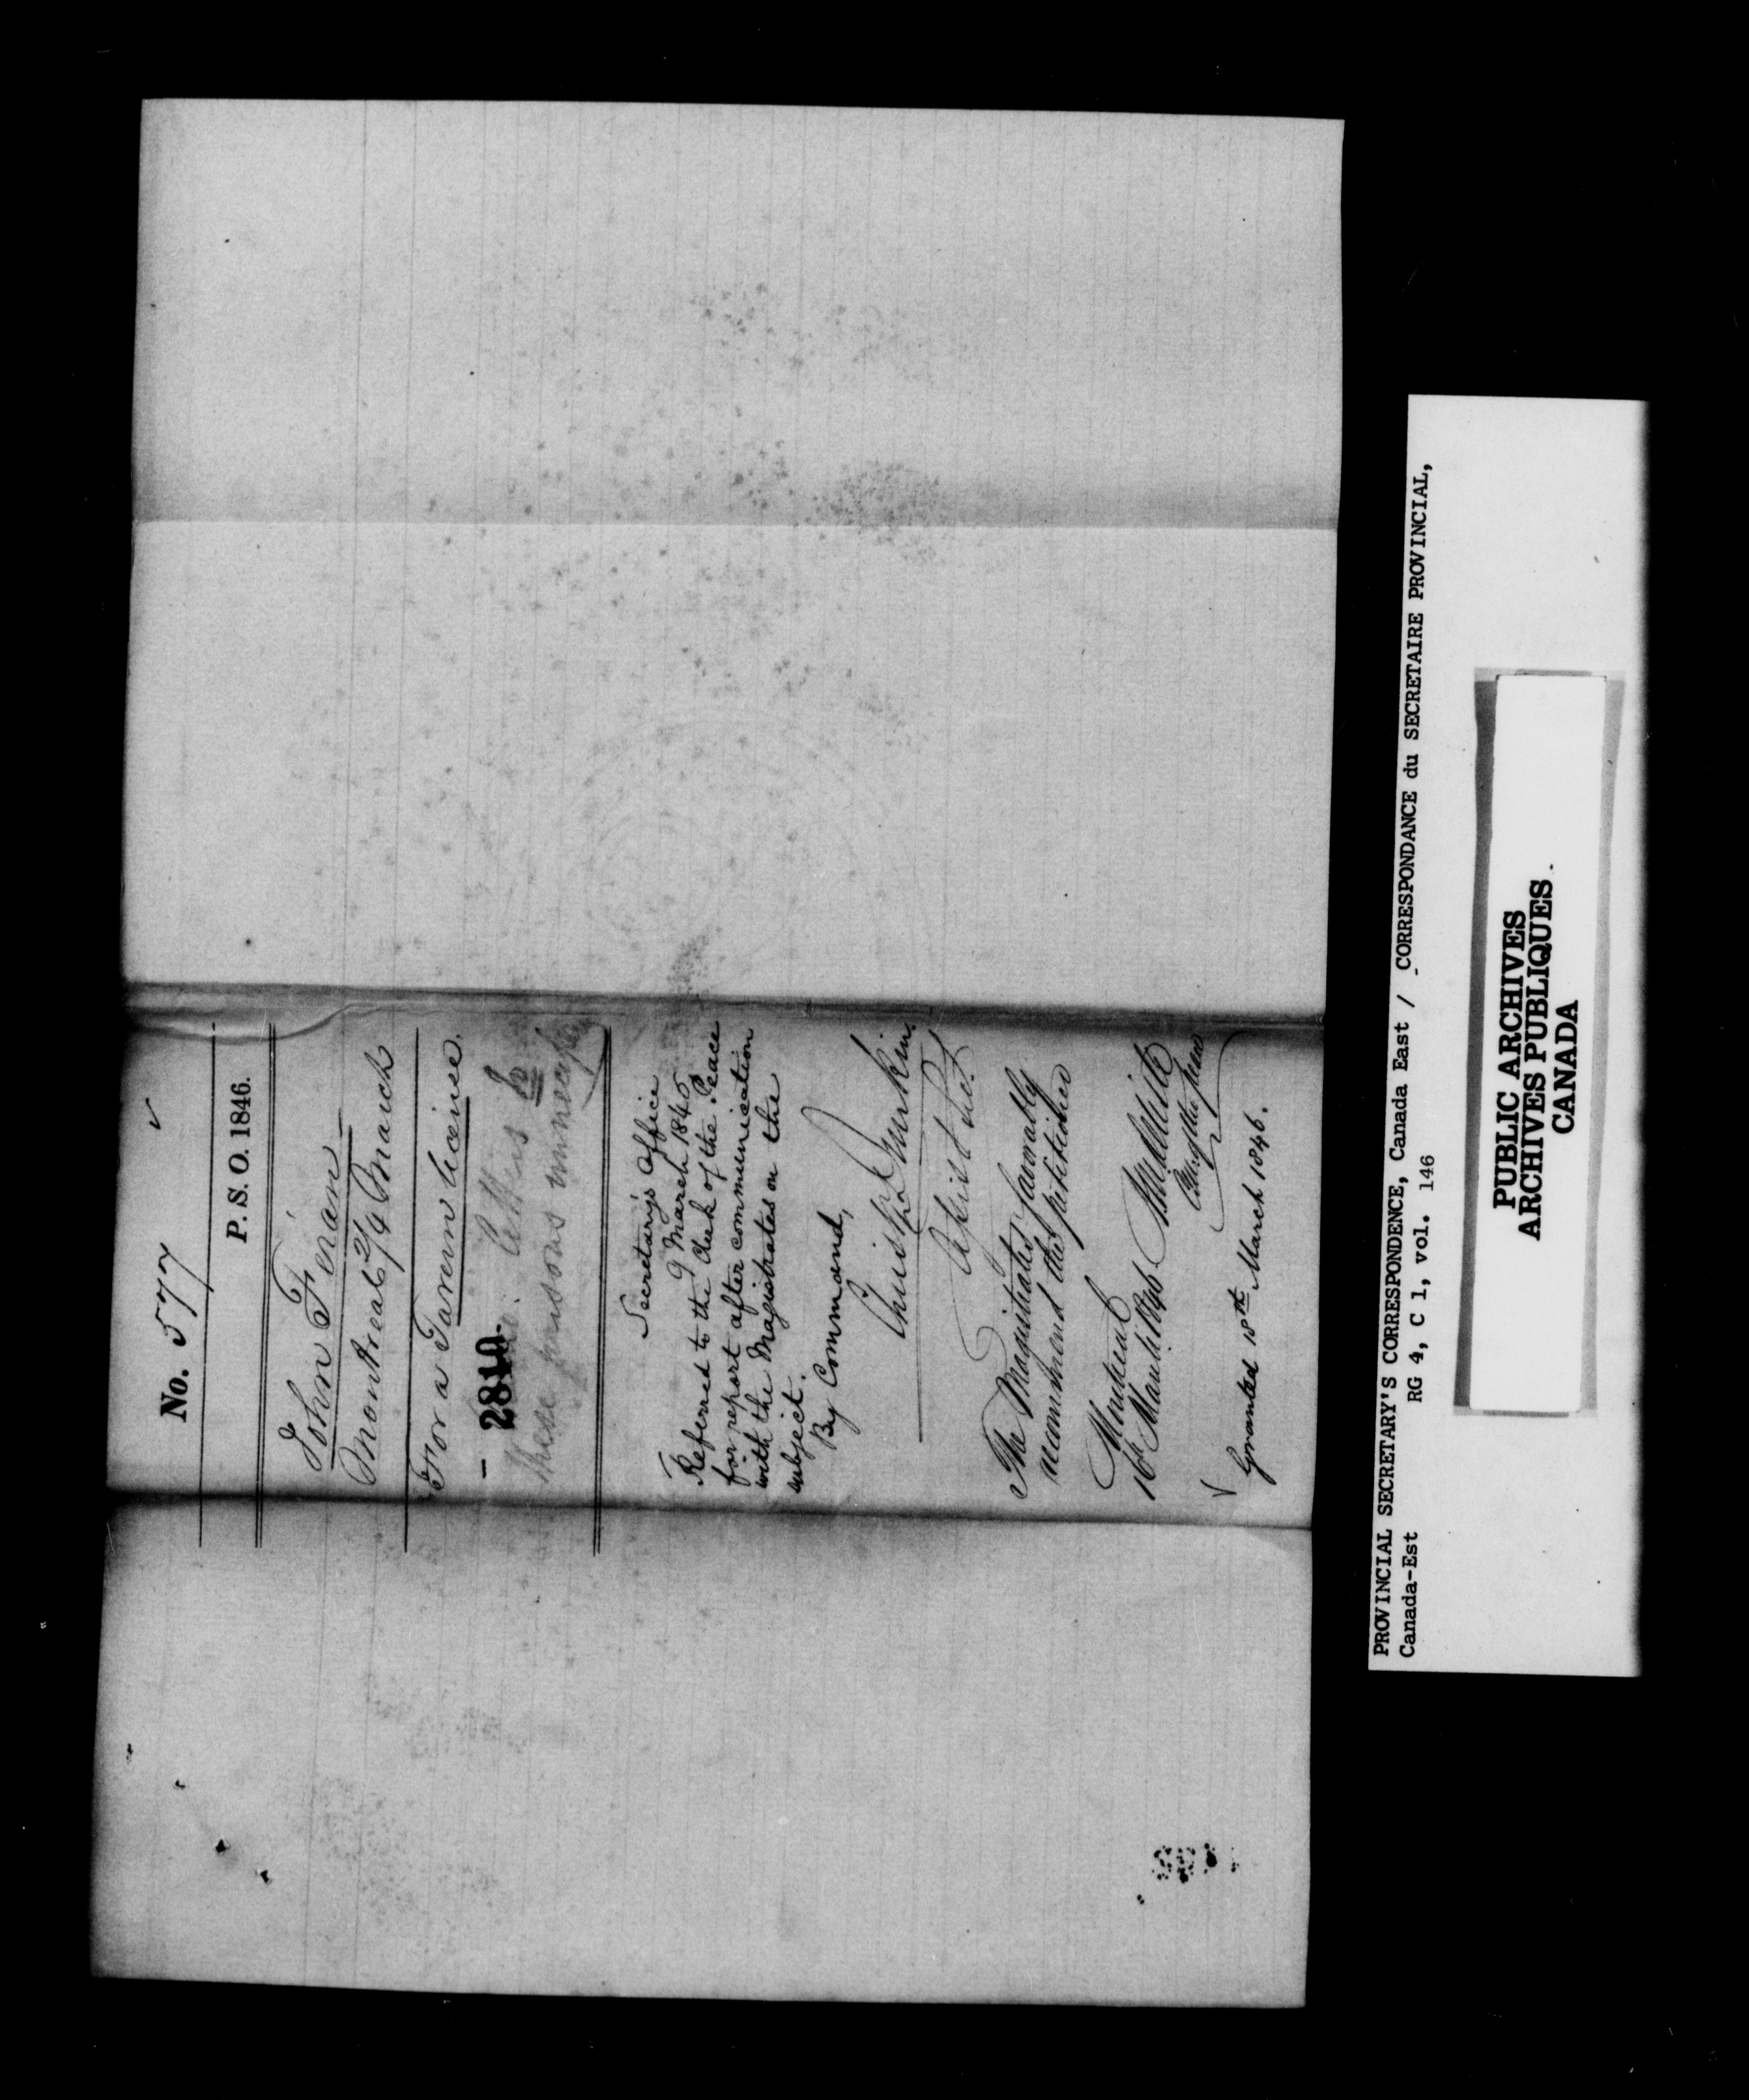 No. 577
P. S. O. 1846.
John Feran
Montreal 2/4 March
For a Tavern licence.
- 2810.
Letters to
these persons unnecessy
Secretary's Office
9 March 1846
Referred to the Clerk of the Peace
for report after communication
with the Magistrates on the
subject.
By Command,
Christr Dunkin
Assist Secy
The Magistrates favorably
recommend this petitioner
Montreal
16th March 1846
Clk of the peace
Granted 18th March 1846.
PROVINCIAL SECRETARY'S CORRESPONDENCE, Canada East / CORRESPONDANCE du SECRETAIRE PROVINCIAL,
Canada-Est RG 4, C 1, vol. 146
PUBLIC ARCHIVES
ARCHIVES PUBLIQUES
CANADA